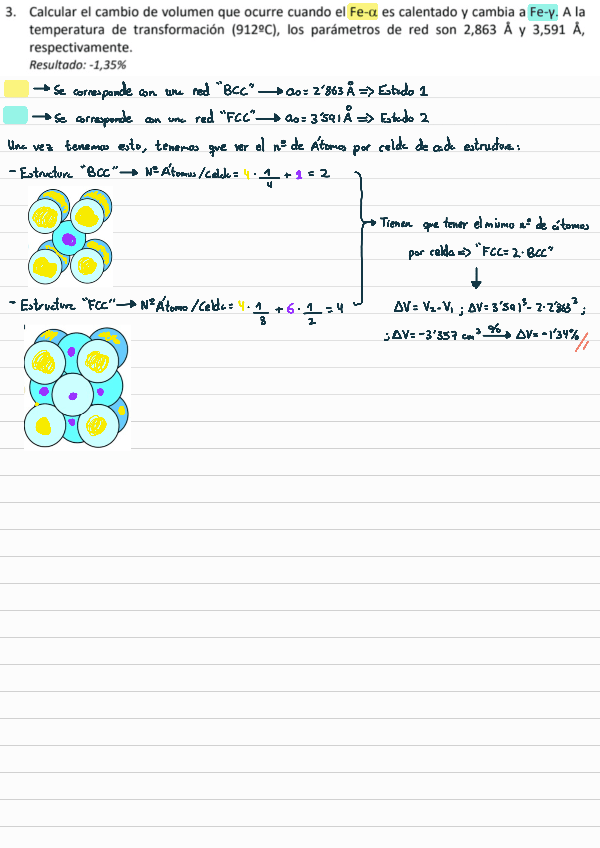 3. Calcular el cambio de volumen que ocurre cuando el Fe-α es calentado y cambia a Fe-γ. A la
temperatura de transformación (912ºC), los parámetros de red son 2,863 Å y 3,591 Å,
respectivamente.
Resultado: -1,35%
→ Se corresponde con una red "BCC" → ao = 2'863 Å => Estado 1
→ Se corresponde con una red "FCC" → ao = 3'591 Å => Estado 2
Una vez tenemos esto, tenemos que ver el nº de Átomos por celda de cada estructura:
- Estructura "BCC" → Nº Átomos/Celda = 4 · 1/4 + 1 = 2
- Estructura "FCC" → Nº Átomo/Celda = 4 · 1/8 + 6 · 1/2 = 4
→ Tienen que tener el mismo nº de átomos
por celda => "FCC = 2 · BCC"
↓
ΔV = V₂ - V₁ ; ΔV = 3'591³ - 2 · 2'863³ ;
; ΔV = -3'357 cm³ % → ΔV = -1'34%